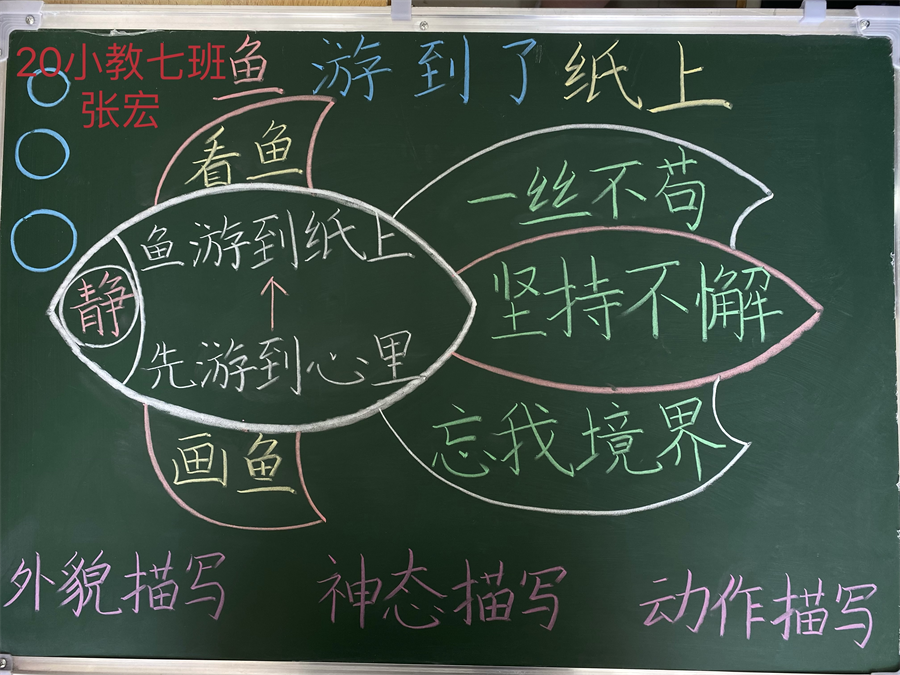 20小教七班
张宏
鱼游到了纸上
看鱼
一丝不苟
鱼游到纸上
静
坚持不懈
先游到心里
画鱼
忘我境界
外貌描写 神态描写 动作描写